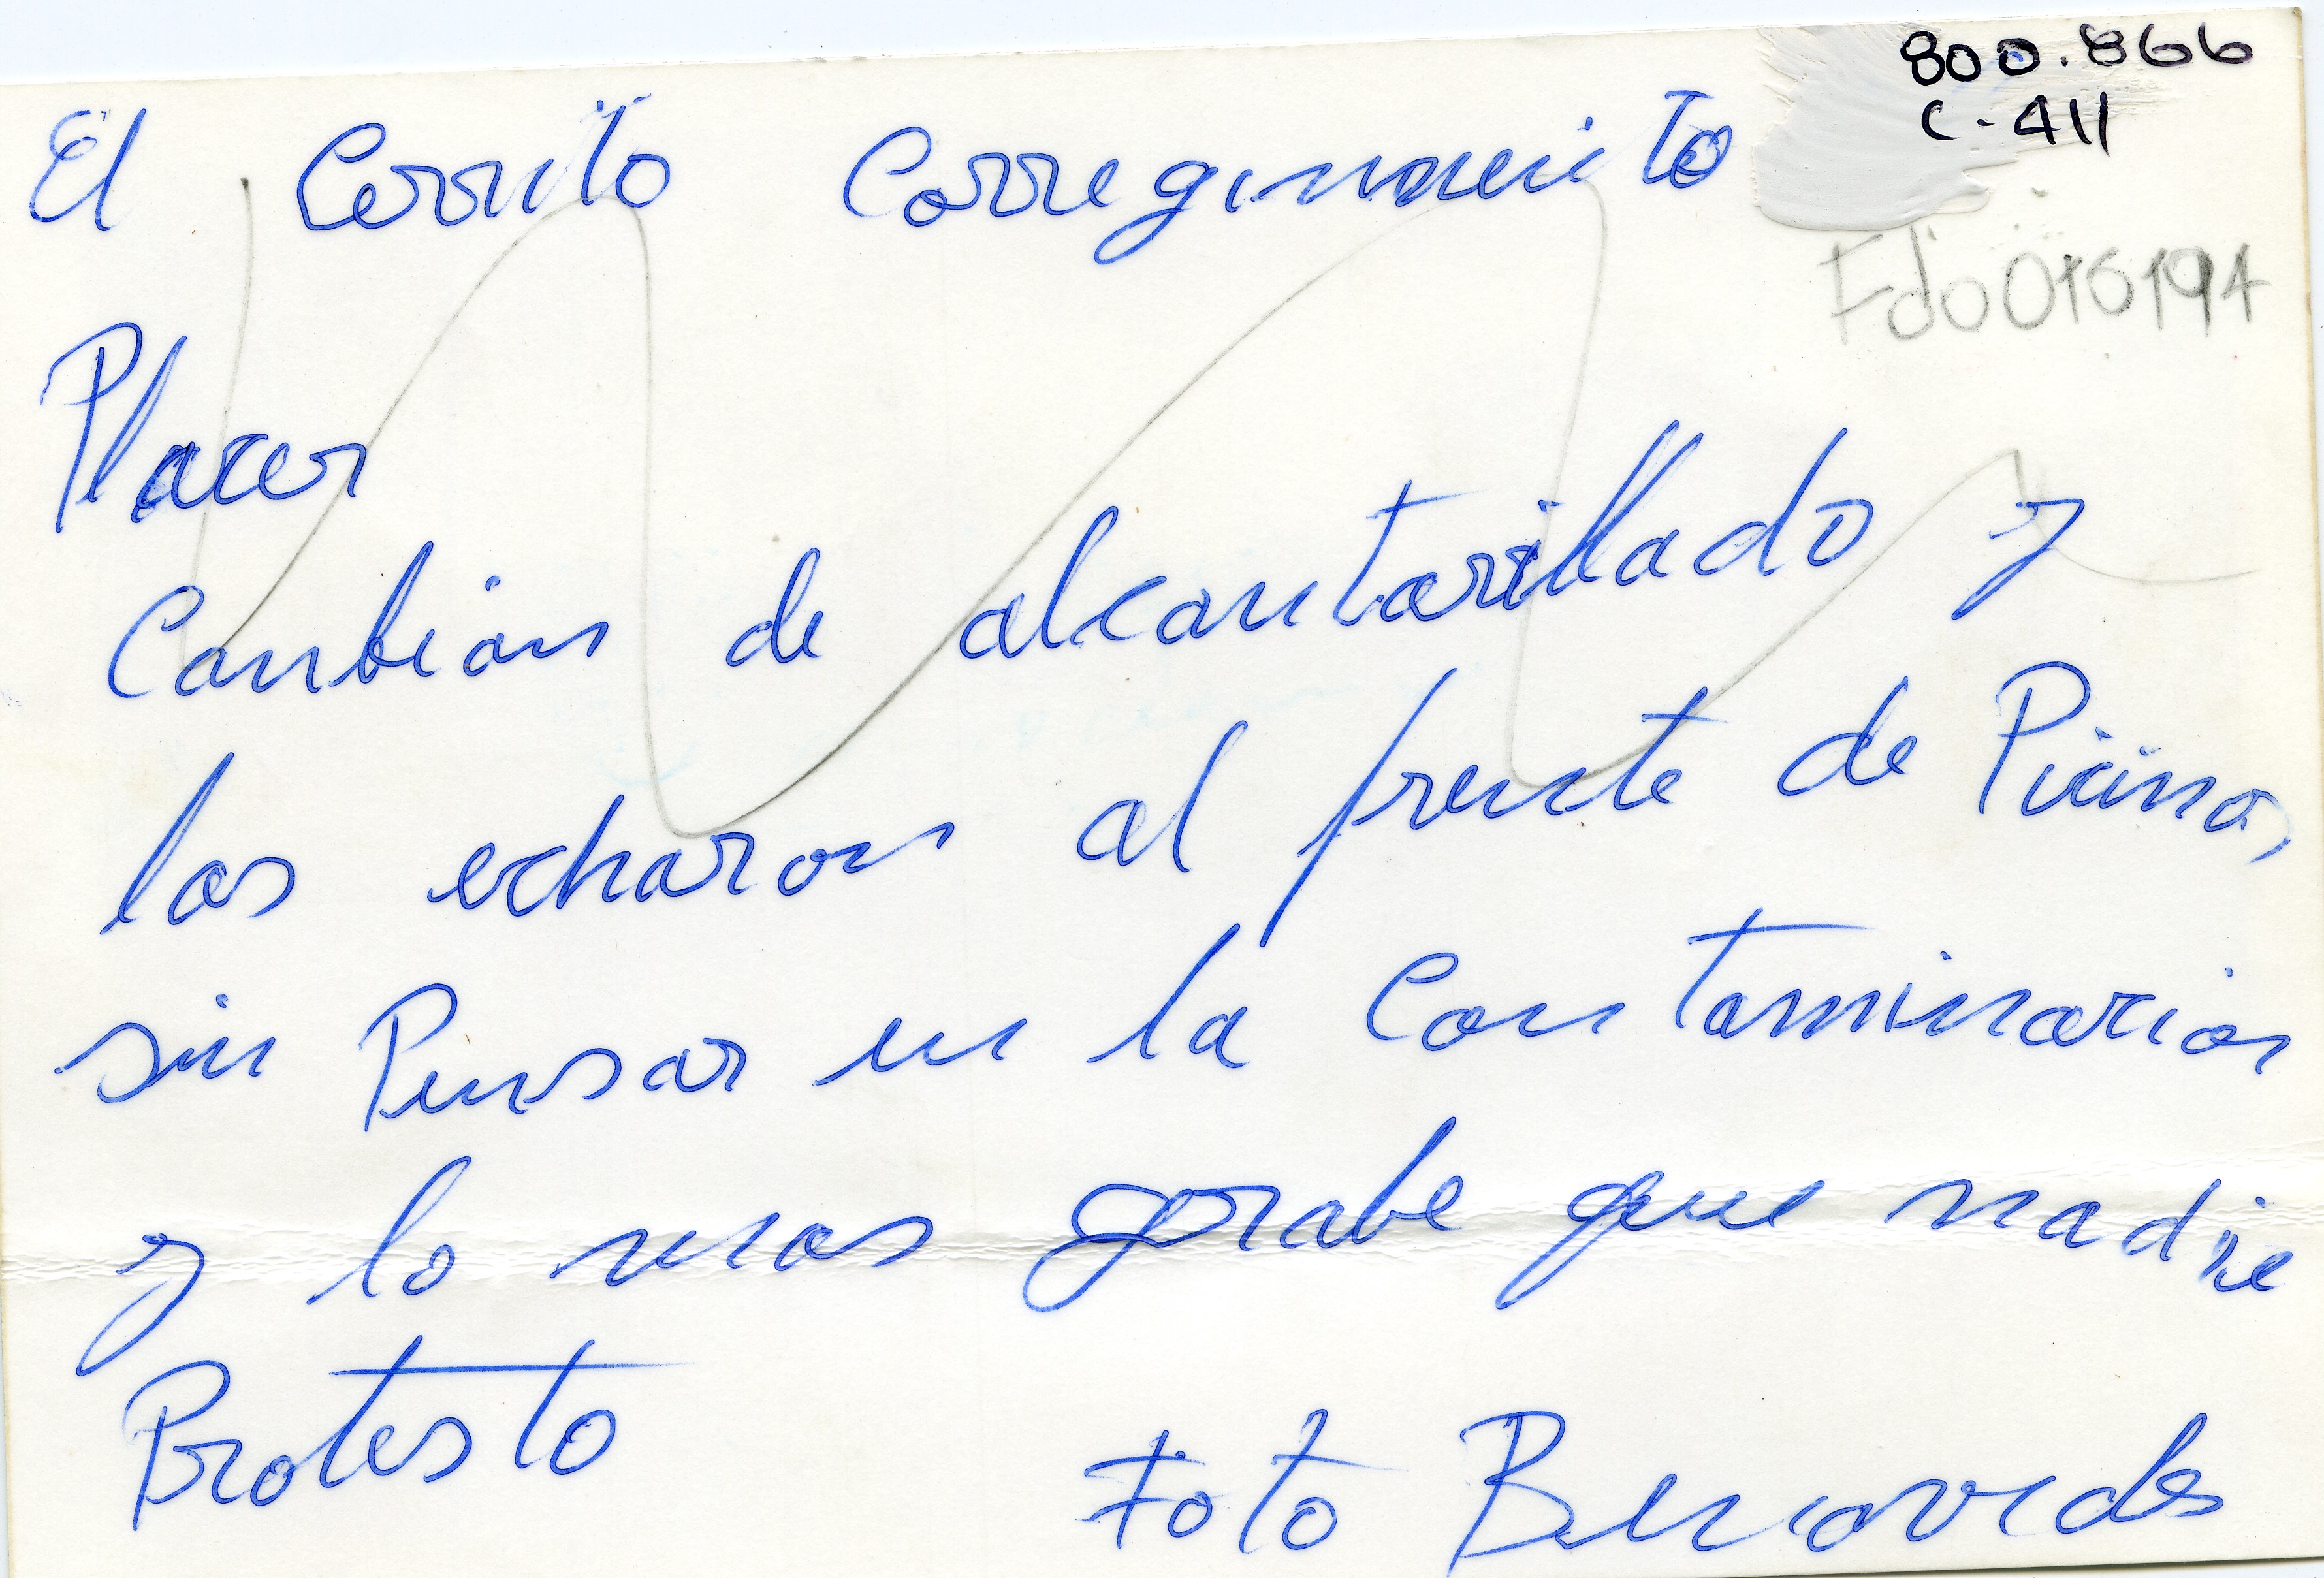 800.866
C-411
El Cerrito Corregimiento
Fdo016194
Placer
Canbian de alcantarillado y
las echaron al frente de Picina,
sin Pensar en la Contaminacion
y lo mas grabe que nadie
Protesto
Foto Benavides